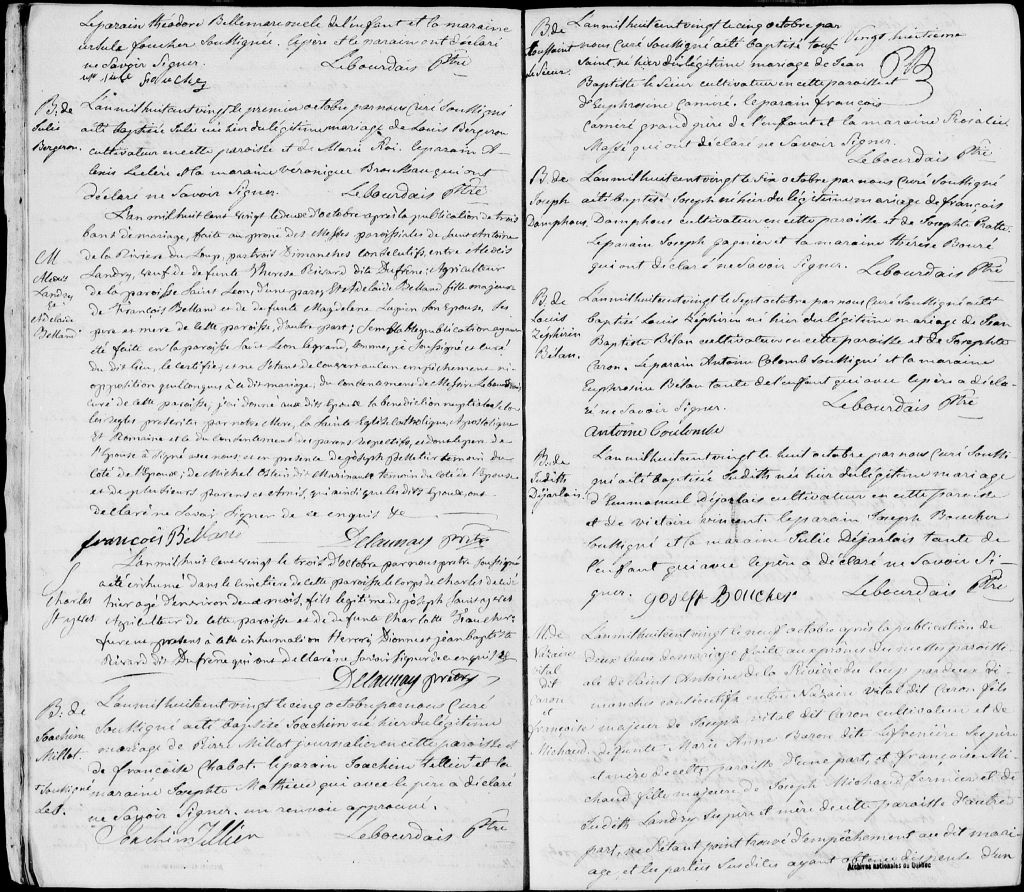 Le parain théodore Bellemare oncle de l'enfant et la maraine
ursule foucher Soussignée. le père et le parain ont déclaré
ne Savoir Signer. Lebourdais Ptre
B. de Julie Bergeron.
L'an mil huit cent vingt le premier octobre par nous Curé Soussigné
a été baptisée Julie née hier du légitime mariage de Louis Bergeron
cultivateur en cette paroisse et de Marie Roi. le parain A-
lexis Leclerc & la maraine véronique qui ont
déclaré ne Savoir Signer. Lebourdais Ptre
M Alexis Landry & Adelaide Belland
L'an mil huit cent vingt le deux d'octobre après la publication de trois
bans de mariage, faite au prone des Messes paroissiales de Saint Antoine
de la Riviere du Loup, par trois Dimanches consécutifs, entre Alexis
Landry, veuf de defunte Therese Rivard dite Dufrene, Agriculteur
de la paroisse Saint Leon, d'une part; & Adelaide Belland fille majeure
de François Belland et de defunte Magdelene Lupien Son Epouse, Ses
pere et mere de cette paroisse, d'autre part; Semblable publication ayant
été faite en la paroisse Saint Leon legrand, comme, je Soussigné et curé
du dit lieu, le certifie, et ne S'etant decouvert aucun empêchement ni
opposition quelconque à ladit mariage, du consentement de Messire Lebourdais
curé de cette paroisse, j'ai donné aux dits Epoux la benediction nuptiale selon
les regles prescrites par notre Mere, la Sainte Eglise Catholique, Apostolique
et Romaine et du consentement des parens respectifs, et dont le pere de
l'Epouse à Signé avec nous et en presence de joseph pelletier temoin du
coté de l'Epoux, de Michel dit Marineau temoin du coté de l'Epouse
et de plusieurs parens et amis, qui ainsi que les dits Epoux, ont
declaré ne Savoir Signer de ce enquis &c
françois Belland Delaunay prêtre
S Charles St yves
L'an mil huit cent vingt le trois d'octobre par nous pretre Soussigné
a été inhumé dans le cimetiere de cette paroisse le corps de Charles decedé
hier agé d'environ deux mois, fils legitime de joseph Saint yves
Agriculteur de cette paroisse et de defunte Charlotte
furent presens à cette inhumation Dionne et jean baptiste
Rivard dit Dufrene qui ont declaré ne Savoir Signer de ce enquis &c
Delaunay prêtre
B. de Joachim Millot.
L'an mil huit cent vingt le cinq octobre par nous Curé
Soussigné a été baptisé Joachim né hier du légitime
mariage de Pierre Millot journalier en cette paroisse et
de françoise Chabot. le parain Joachim et la
maraine Josephte Mathieu qui avec le père a déclaré
ne Savoir Signer. un renvoi approuvé.
+ Soussigné
Lebourdais Ptre
B. de Toussaint Le Sieur.
vingt huitième
L'an mil huit cent vingt le cinq octobre par
nous Curé Soussigné a été baptisé Tous-
saint né hier du légitime mariage de Jean
Baptiste le Sieur cultivateur en cette paroisse et
d'Euphrosine Camiré. le parain françois
Camiré grand père de l'enfant et la maraine Rosalie
Massé qui ont déclaré ne Savoir Signer.
Lebourdais Ptre
B. de Joseph Damphous.
L'an mil huit cent vingt le Six octobre par nous Curé Soussigné
a été baptisé Joseph né hier du légitime mariage de françois
Damphous cultivateur en cette paroisse et de Josephte Pratte.
Le parain Joseph gagnier et la maraine thérèse
qui ont déclaré ne Savoir Signer. Lebourdais Ptre
B. de Louis Zéphirin Bélan.
L'an mil huit cent vingt le Sept octobre par nous Curé Soussigné a été
baptisé Louis Zéphirin né hier du légitime mariage de Jean
Baptiste Bélan cultivateur en cette paroisse et de Josephte
Caron. Le parain Antoine Colomb Soussigné et la maraine
Euphrosine Bélan tante de l'enfant qui avec le père a décla-
ré ne Savoir Signer. Lebourdais Ptre
Antoine Coulombe
B. de Judith Déjarlais.
L'an mil huit cent vingt le huit octobre par nous Curé Soussi-
gné a été baptisée Judith née hier du légitime mariage
d'Emmanuel Déjarlais cultivateur en cette paroisse
et de victoire vincent. le parain Joseph Boucher
Soussigné et la maraine Julie Déjarlais tante de
l'enfant qui avec le père a déclaré ne Savoir Si-
gner. Joseph Boucher Lebourdais Ptre
M. de Nazaire vital dit Caron et françoise Michaud.
L'an mil huit cent vingt le neuf octobre après la publication de
deux bans de mariage faite aux prones des messes paroissi-
ale de Saint Antoine de la Rivière du loup par deux di-
manches consécutifs entre Nazaire vital dit Caron fils
majeur de Joseph vital dit Caron cultivateur et de
défunte Marie Anne Baron dite Ses père
et mère de cette paroisse d'une part, et françoise Mi-
chaud fille majeure de Joseph Michaud fermier et de
Judith Landry Ses père et mère de cette paroisse d'autre
part, ne S'étant point trouvé d'empêchement au dit mari-
age, et les parties Susdites ayant obtenu dispense d'un
Archives nationales du Québec